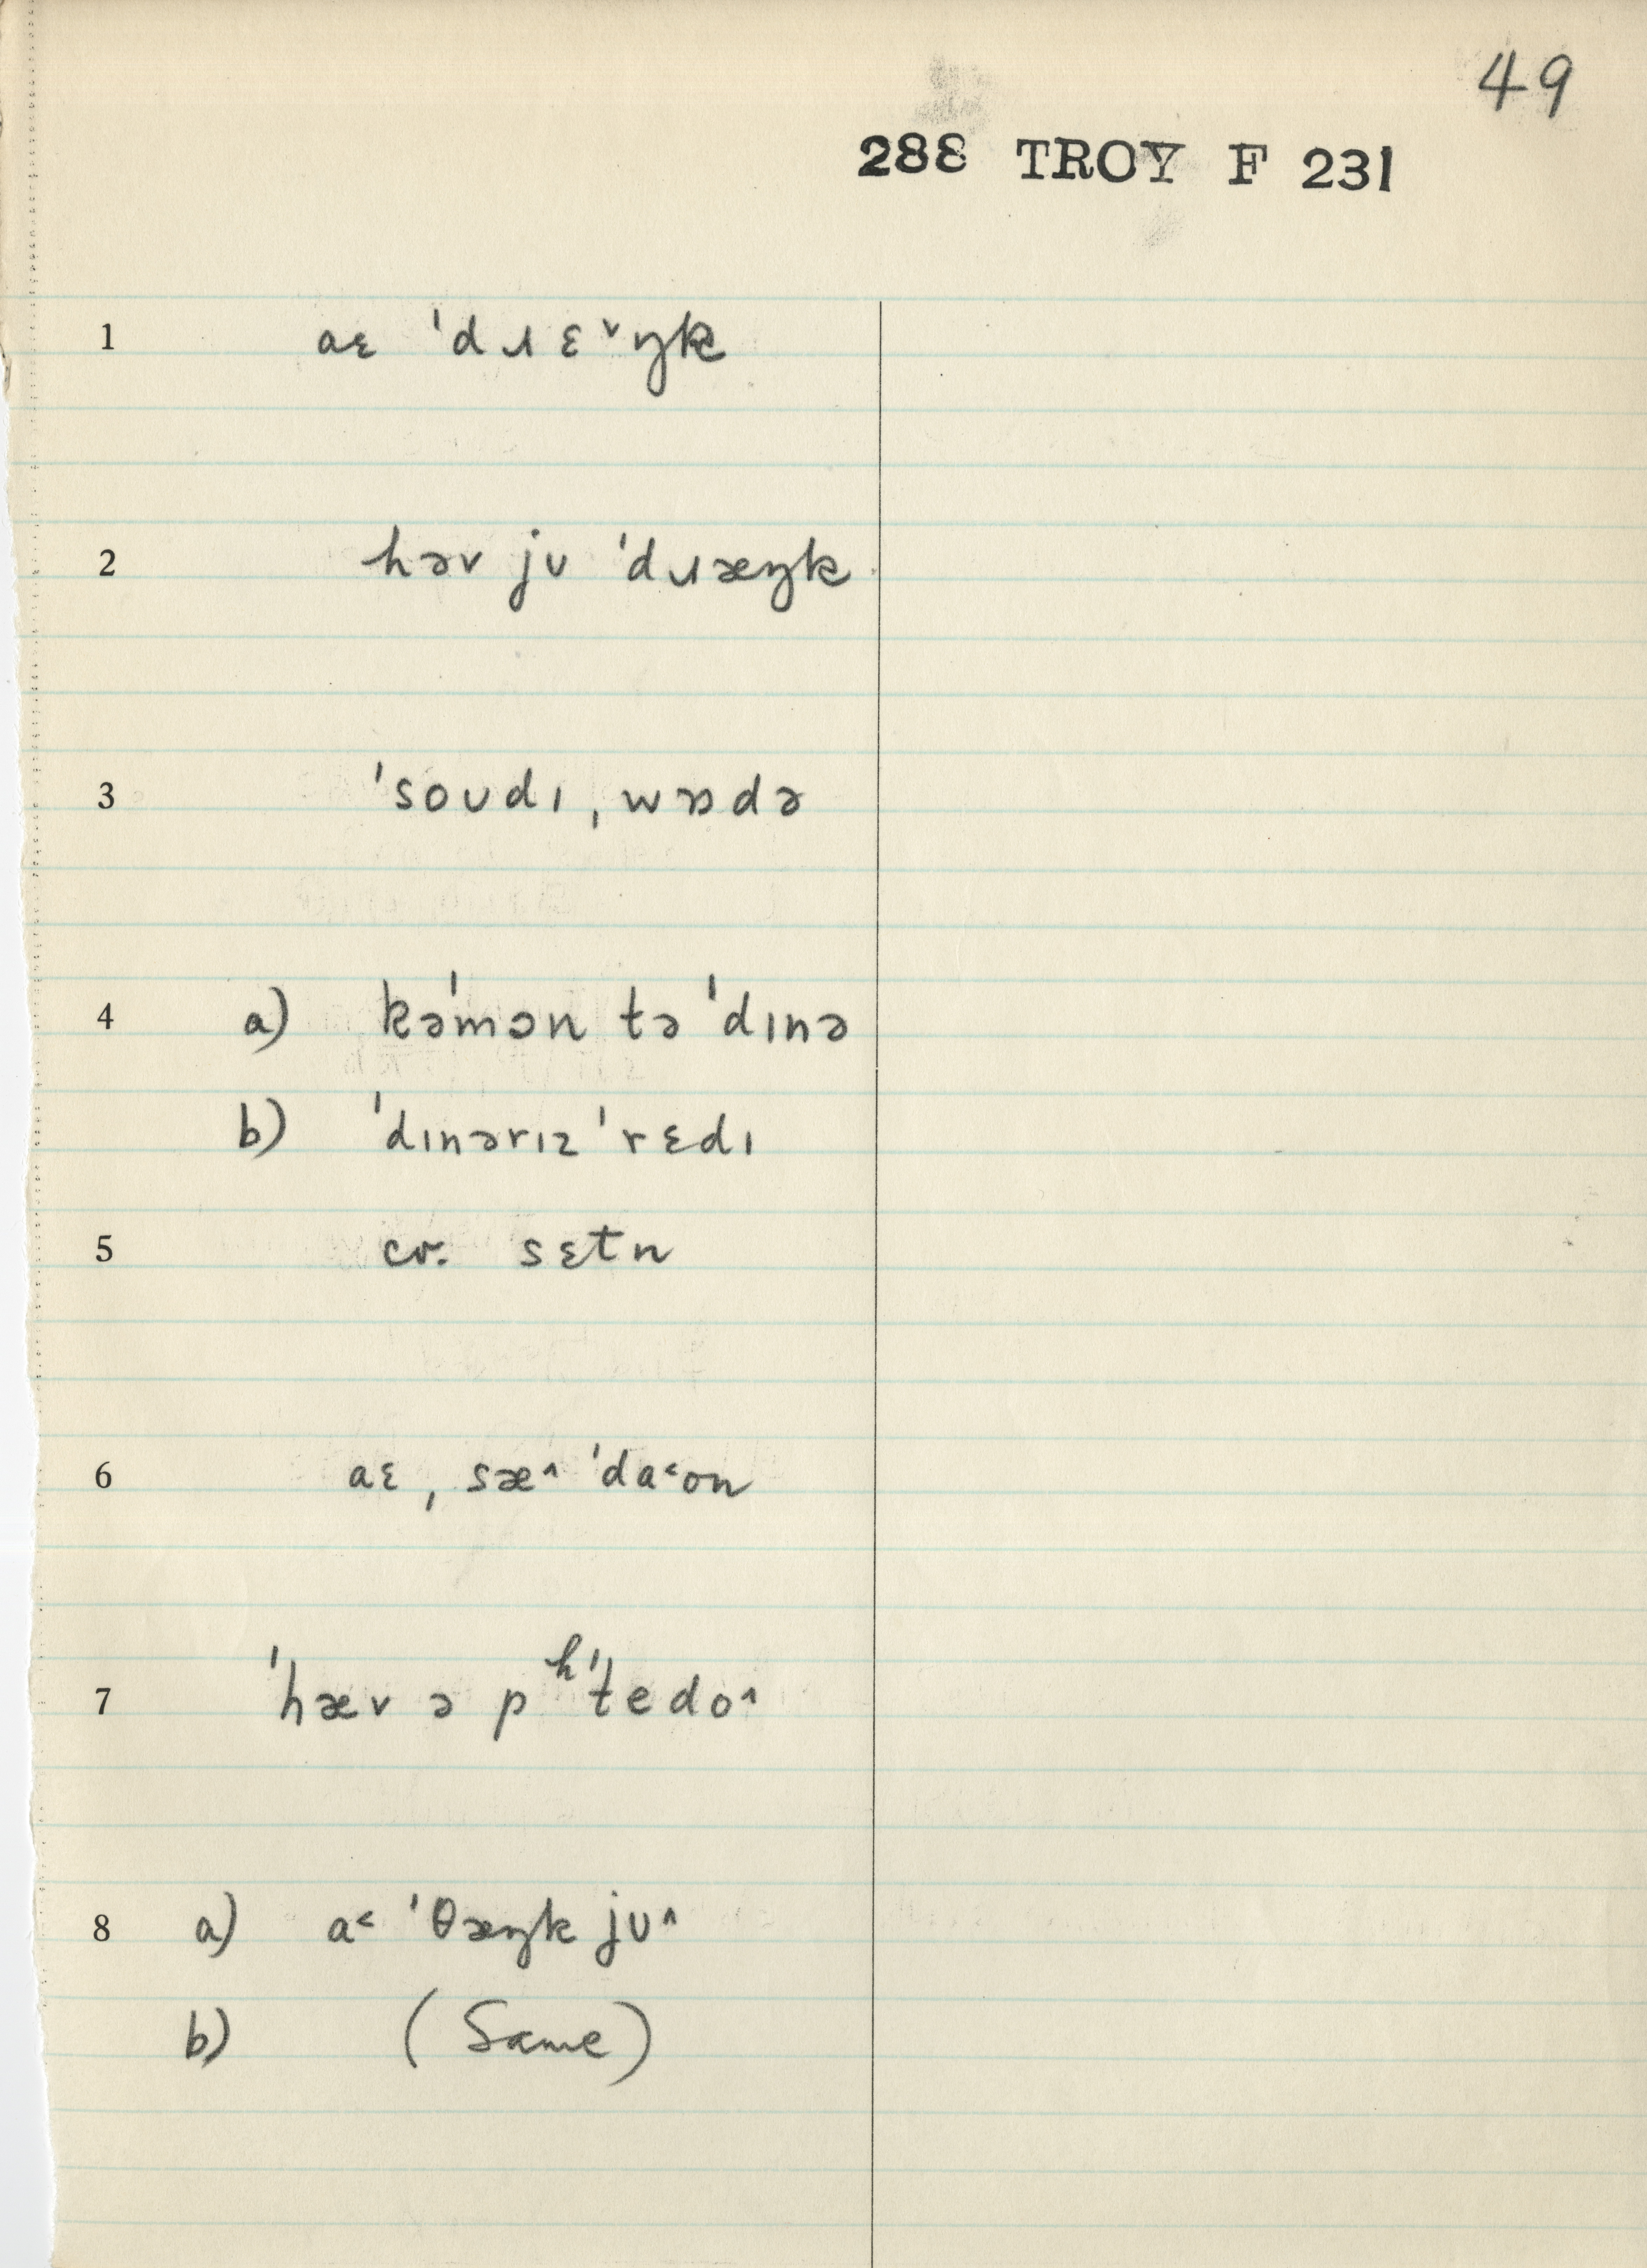 49
288 TROY F 231
1 aɛ 'dɹɛ˅ŋk
2 həv jʊ 'dɹæŋk
3 'soʊdɪ ˌwɒdə
4 a) kə'mɔn tə 'dɪnə
b) 'dɪnərɪz 'rɛdɪ
5 cr. sɛtn
6 aɛ ˌsæ˄ 'da˂on
7 'hæv ə pʰ'tedo˄
8 a) a˂ 'θæŋk jʊ˄
b) (Same)